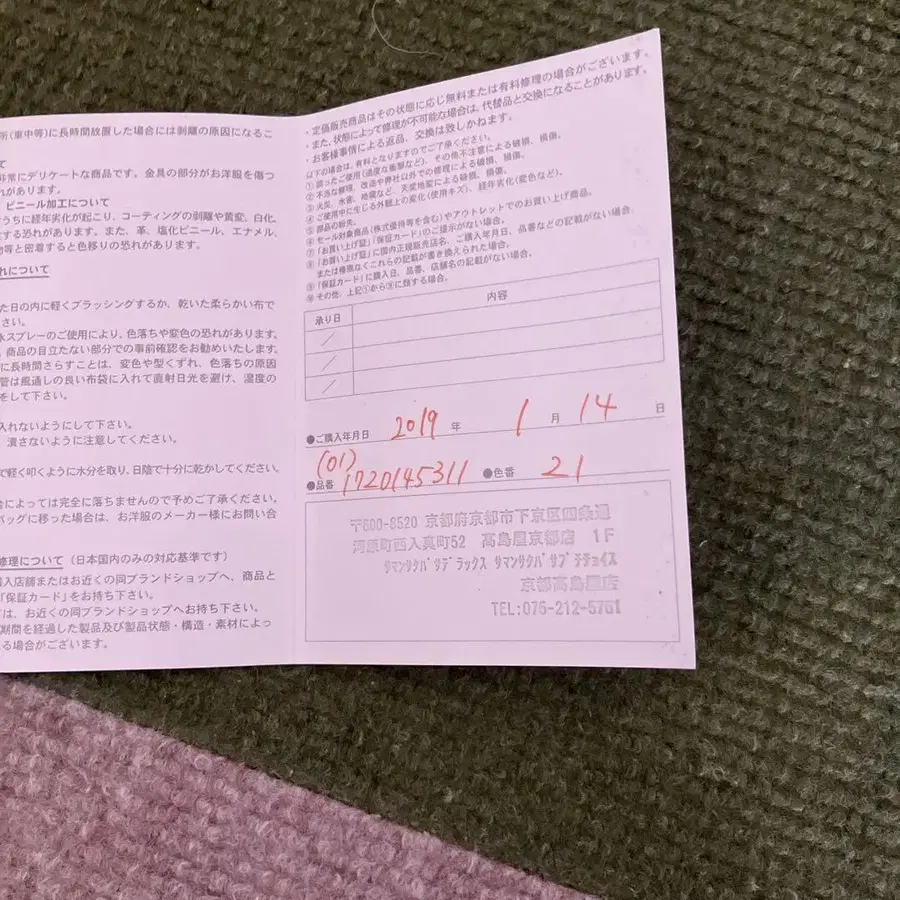 所(車中等)に長時間放置した場合には剥離の原因になるこ
て
非常にデリケートな商品です。金具の部分がお洋服を傷つ
れがあります。
ビニール加工について
うちに経年劣化が起こり、コーティングの剥離や黄変、白化、
する恐れがあります。また、革、塩化ビニール、エナメル、
物等と密着すると色移りの恐れがあります。
れについて
た日の内に軽くブラッシングするか、乾いた柔らかい布で
さい。
水スプレーのご使用により、色落ちや変色の恐れがあります。
商品の目立たない部分での事前確認をお勧めいたします。
に長時間さらすことは、変色や型くずれ、色落ちの原因
管は風通しの良い布袋に入れて直射日光を避け、湿度の
をして下さい。
入れないようにして下さい。
潰さないように注意してください。
で軽く叩くように水分を取り、日陰で十分に乾かしてください。
合によっては完全に落ちませんので予めご了承ください。
バッグに移った場合は、お洋服のメーカー様にお問い合
修理について(日本国内のみの対応基準です)
購入店舗またはお近くの同ブランドショップへ、商品と
「保証カード」をお持ち下さい。
ては、お近くの同ブランドショップへお持ち下さい。
期間を経過した製品及び製品状態・構造・素材によっ
る場合がございます。
・定価販売商品はその状態に応じ無料または有料修理の場合がございます。
・また、状態によって修理が不可能な場合は、代替品と交換になることがあります。
・お客様事情による返品、交換は致しかねます。
以下の場合は、有料となりますのでご了承ください。
①誤ったご使用(過度な衝撃など)、その他不注意による破損、損傷。
②不当な修理、改造や弊社以外での修理による破損、損傷。
③火災、水害、地震など、天変地変による破損、損傷。
④ご使用中に生じる外観上の変化(使用キズ)、経年劣化(変色など)。
⑤部品の紛失。
⑥セール対象商品(株式優待等を含む)やアウトレットでのお買い上げ商品。
⑦「お買い上げ証」「保証カード」のご提示がない場合。
⑧「お買い上げ証」に国内正規販売店名、ご購入年月日、品番などの記載がない場合、
または権限なくこれらの記載が書き換えられた場合。
⑨「保証カード」に購入日、品番、店舗名の記載がない場合。
⑩その他、上記①から⑨に類する場合。
承り日 内容
/
/
/
●ご購入年月日 2019 年 1 月 14 日
(01)
●品番 1720145311 ●色番 21
〒600-8520 京都府京都市下京区四条通
河原町西入真町52 髙島屋京都店 1F
サマンサタバサデラックス サマンサタバサプチチョイス
京都髙島屋店
TEL:075-212-5761